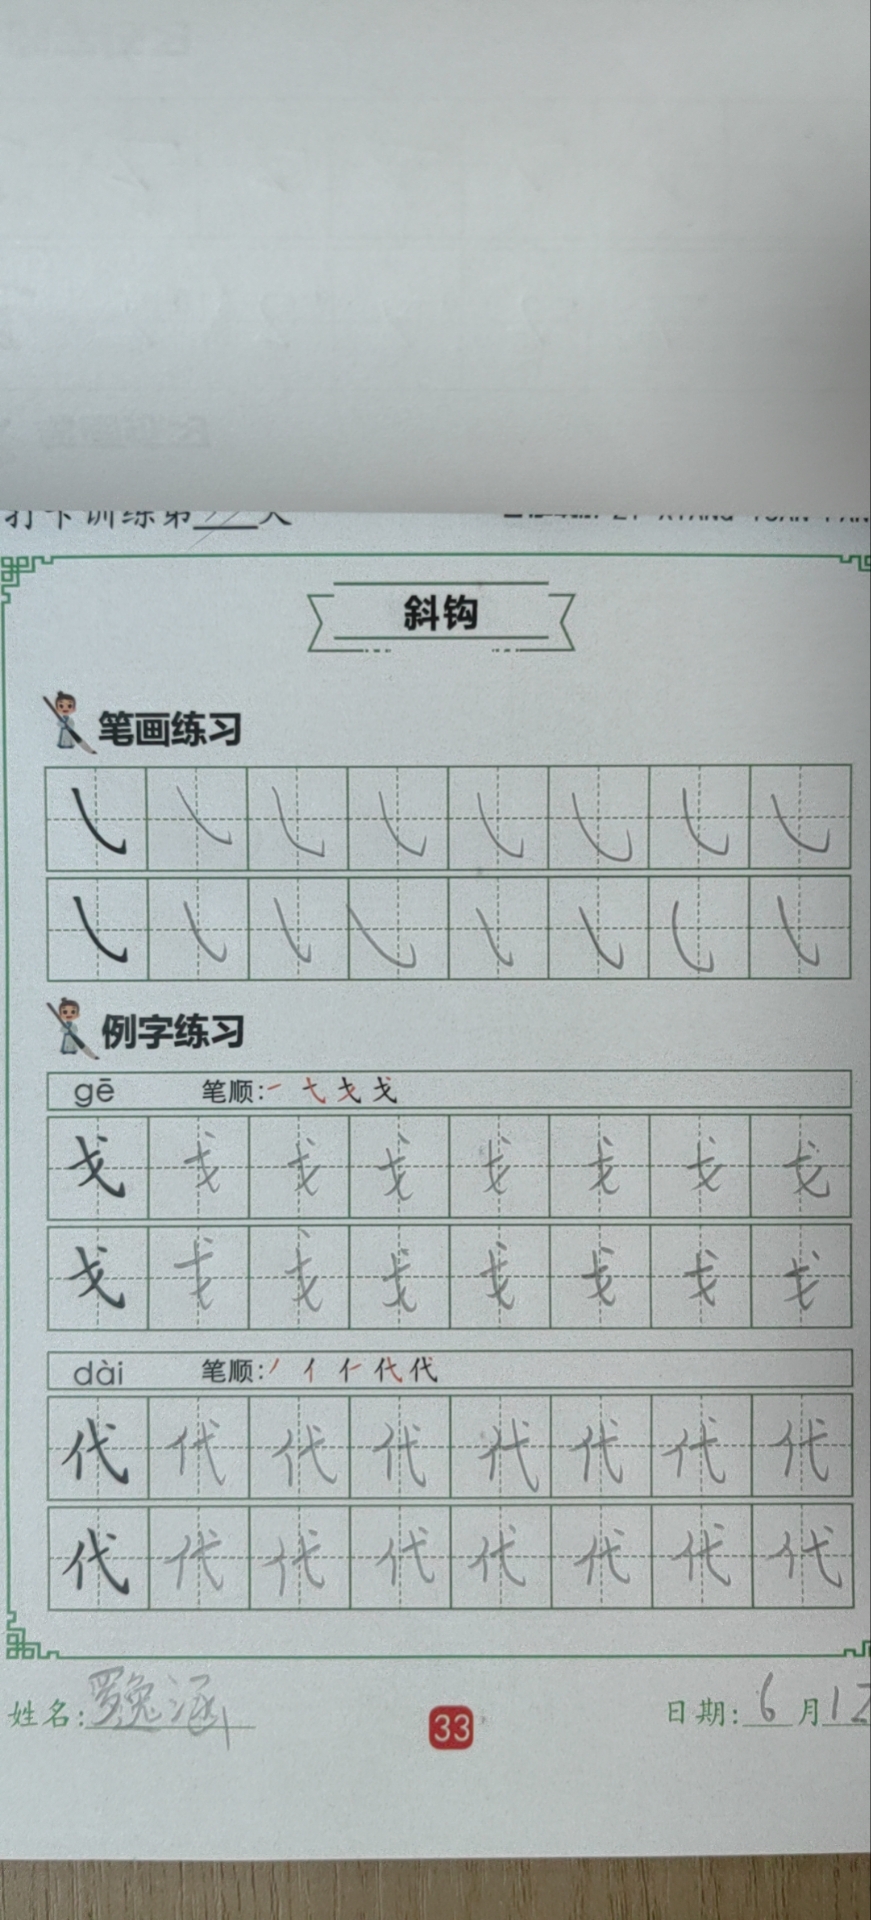 打卡训练第 天
斜钩
笔画练习
例字练习
gē 笔顺:
戈 戈 戈 戈 戈 戈 戈 戈
戈 戈 戈 戈 戈 戈 戈 戈
dài 笔顺: 丿 亻 代 代
代 代 代 代 代 代 代 代
代 代 代 代 代 代 代 代
姓名: 涵
33
日期: 6 月 12